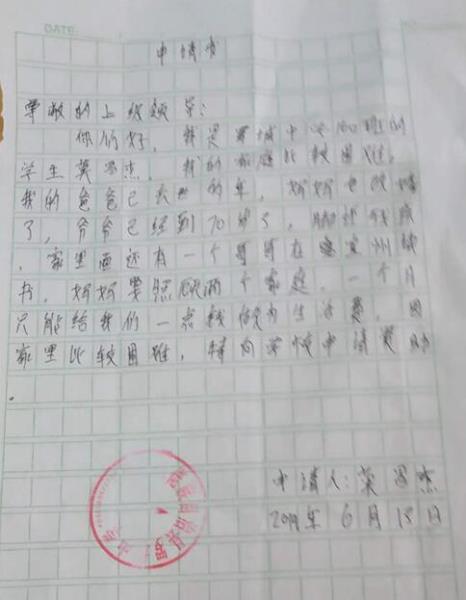 DATE
申请书
尊敬的上级领导:
你们好,我是罗城中学100班的
学生莫冯杰,我的家庭比较困难,
我的爸爸已去世的年,妈妈也改嫁
了,爷爷已经到70岁了,脚还残疾
,家里面还有一个哥哥在宜州读
书,妈妈要照顾两个家庭,一个月
只能给我们一点钱做为生活费,因
家里比较困难,特向学校申请资助
。
申请人:莫冯杰
2019年6月18日